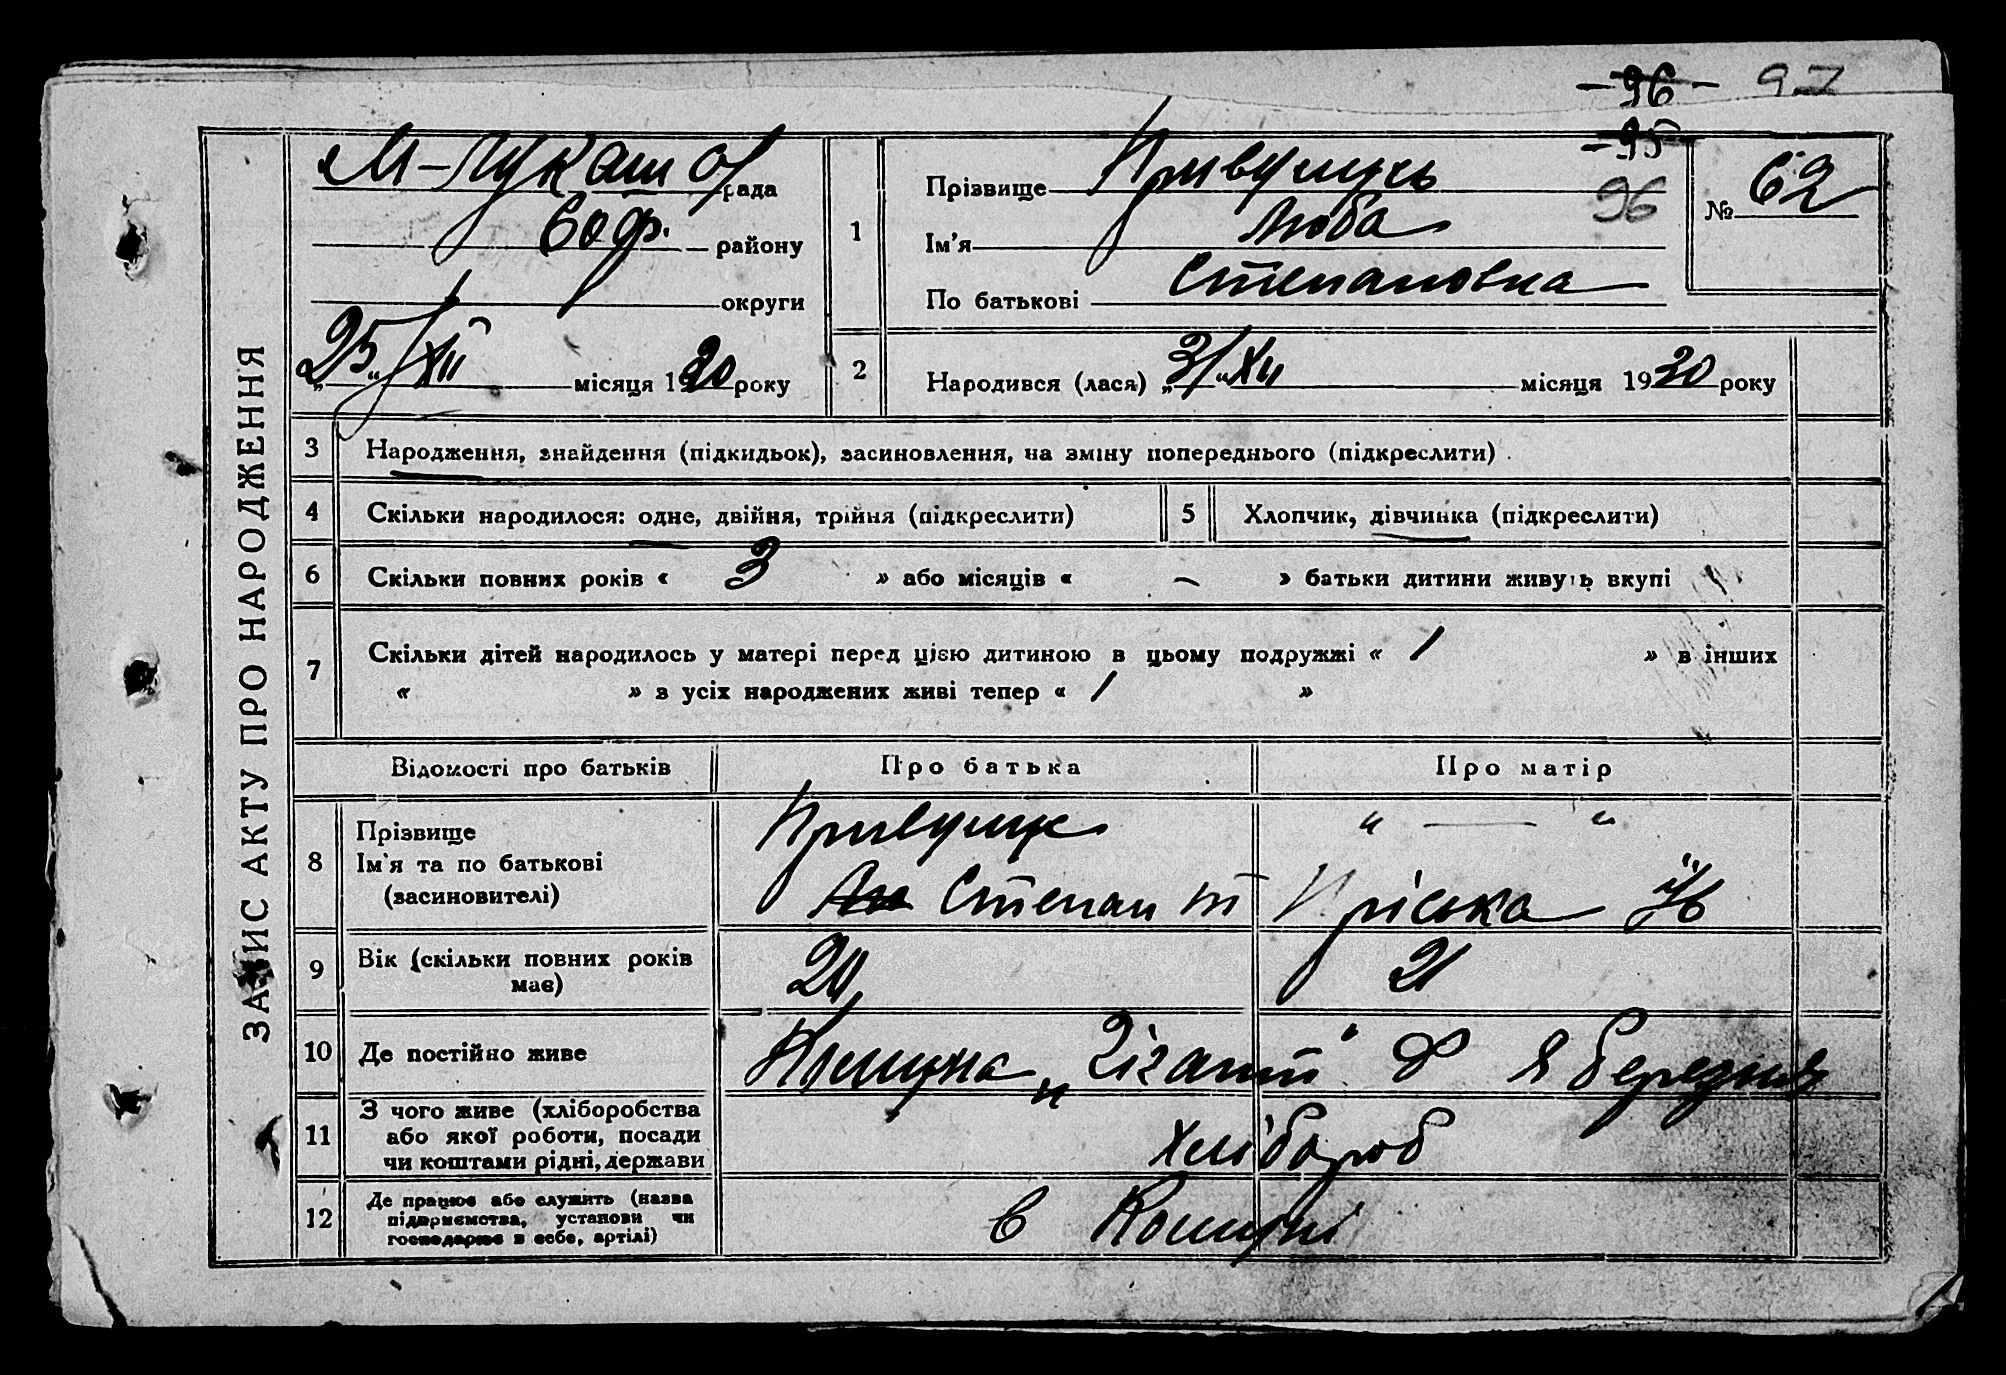 -96- 97
-95-
96
ЗАПИС АКТУ ПРО НАРОДЖЕННЯ
рада
Соф. району
округи
"25" XII місяця 1930 року
1
Прізвище
Ім'я Люба
По батькові Степановна
№ 62
2
Народився (лася) "3" XII місяця 1930 року
3 Народження, знайдення (підкидьок), засиновлення, на зміну попереднього (підкреслити)
4 Скільки народилося: одне, двійня, трійня (підкреслити)
5 Хлопчик, дівчинка (підкреслити)
6 Скільки повних років « 3 » або місяців « – » батьки дитини живуть вкупі
7 Скільки дітей народилось у матері перед цією дитиною в цьому подружжі « 1 » в інших
« » з усіх народжених живі тепер « 1 »
Відомості про батьків Про батька Про матір
8 Прізвище " — "
Ім'я та по батькові
(засиновителі) Степан Пріська
9 Вік (скільки повних років
має) 20 21
10 Де постійно живе Комуна „Гігант" 8 Березня
11 З чого живе (хліборобства
або якої роботи, посади
чи коштами рідні, держави хлібороб
12 Де працює або служить (назва
підприємства, установи чи
господарює в себе, артілі) в Комуні